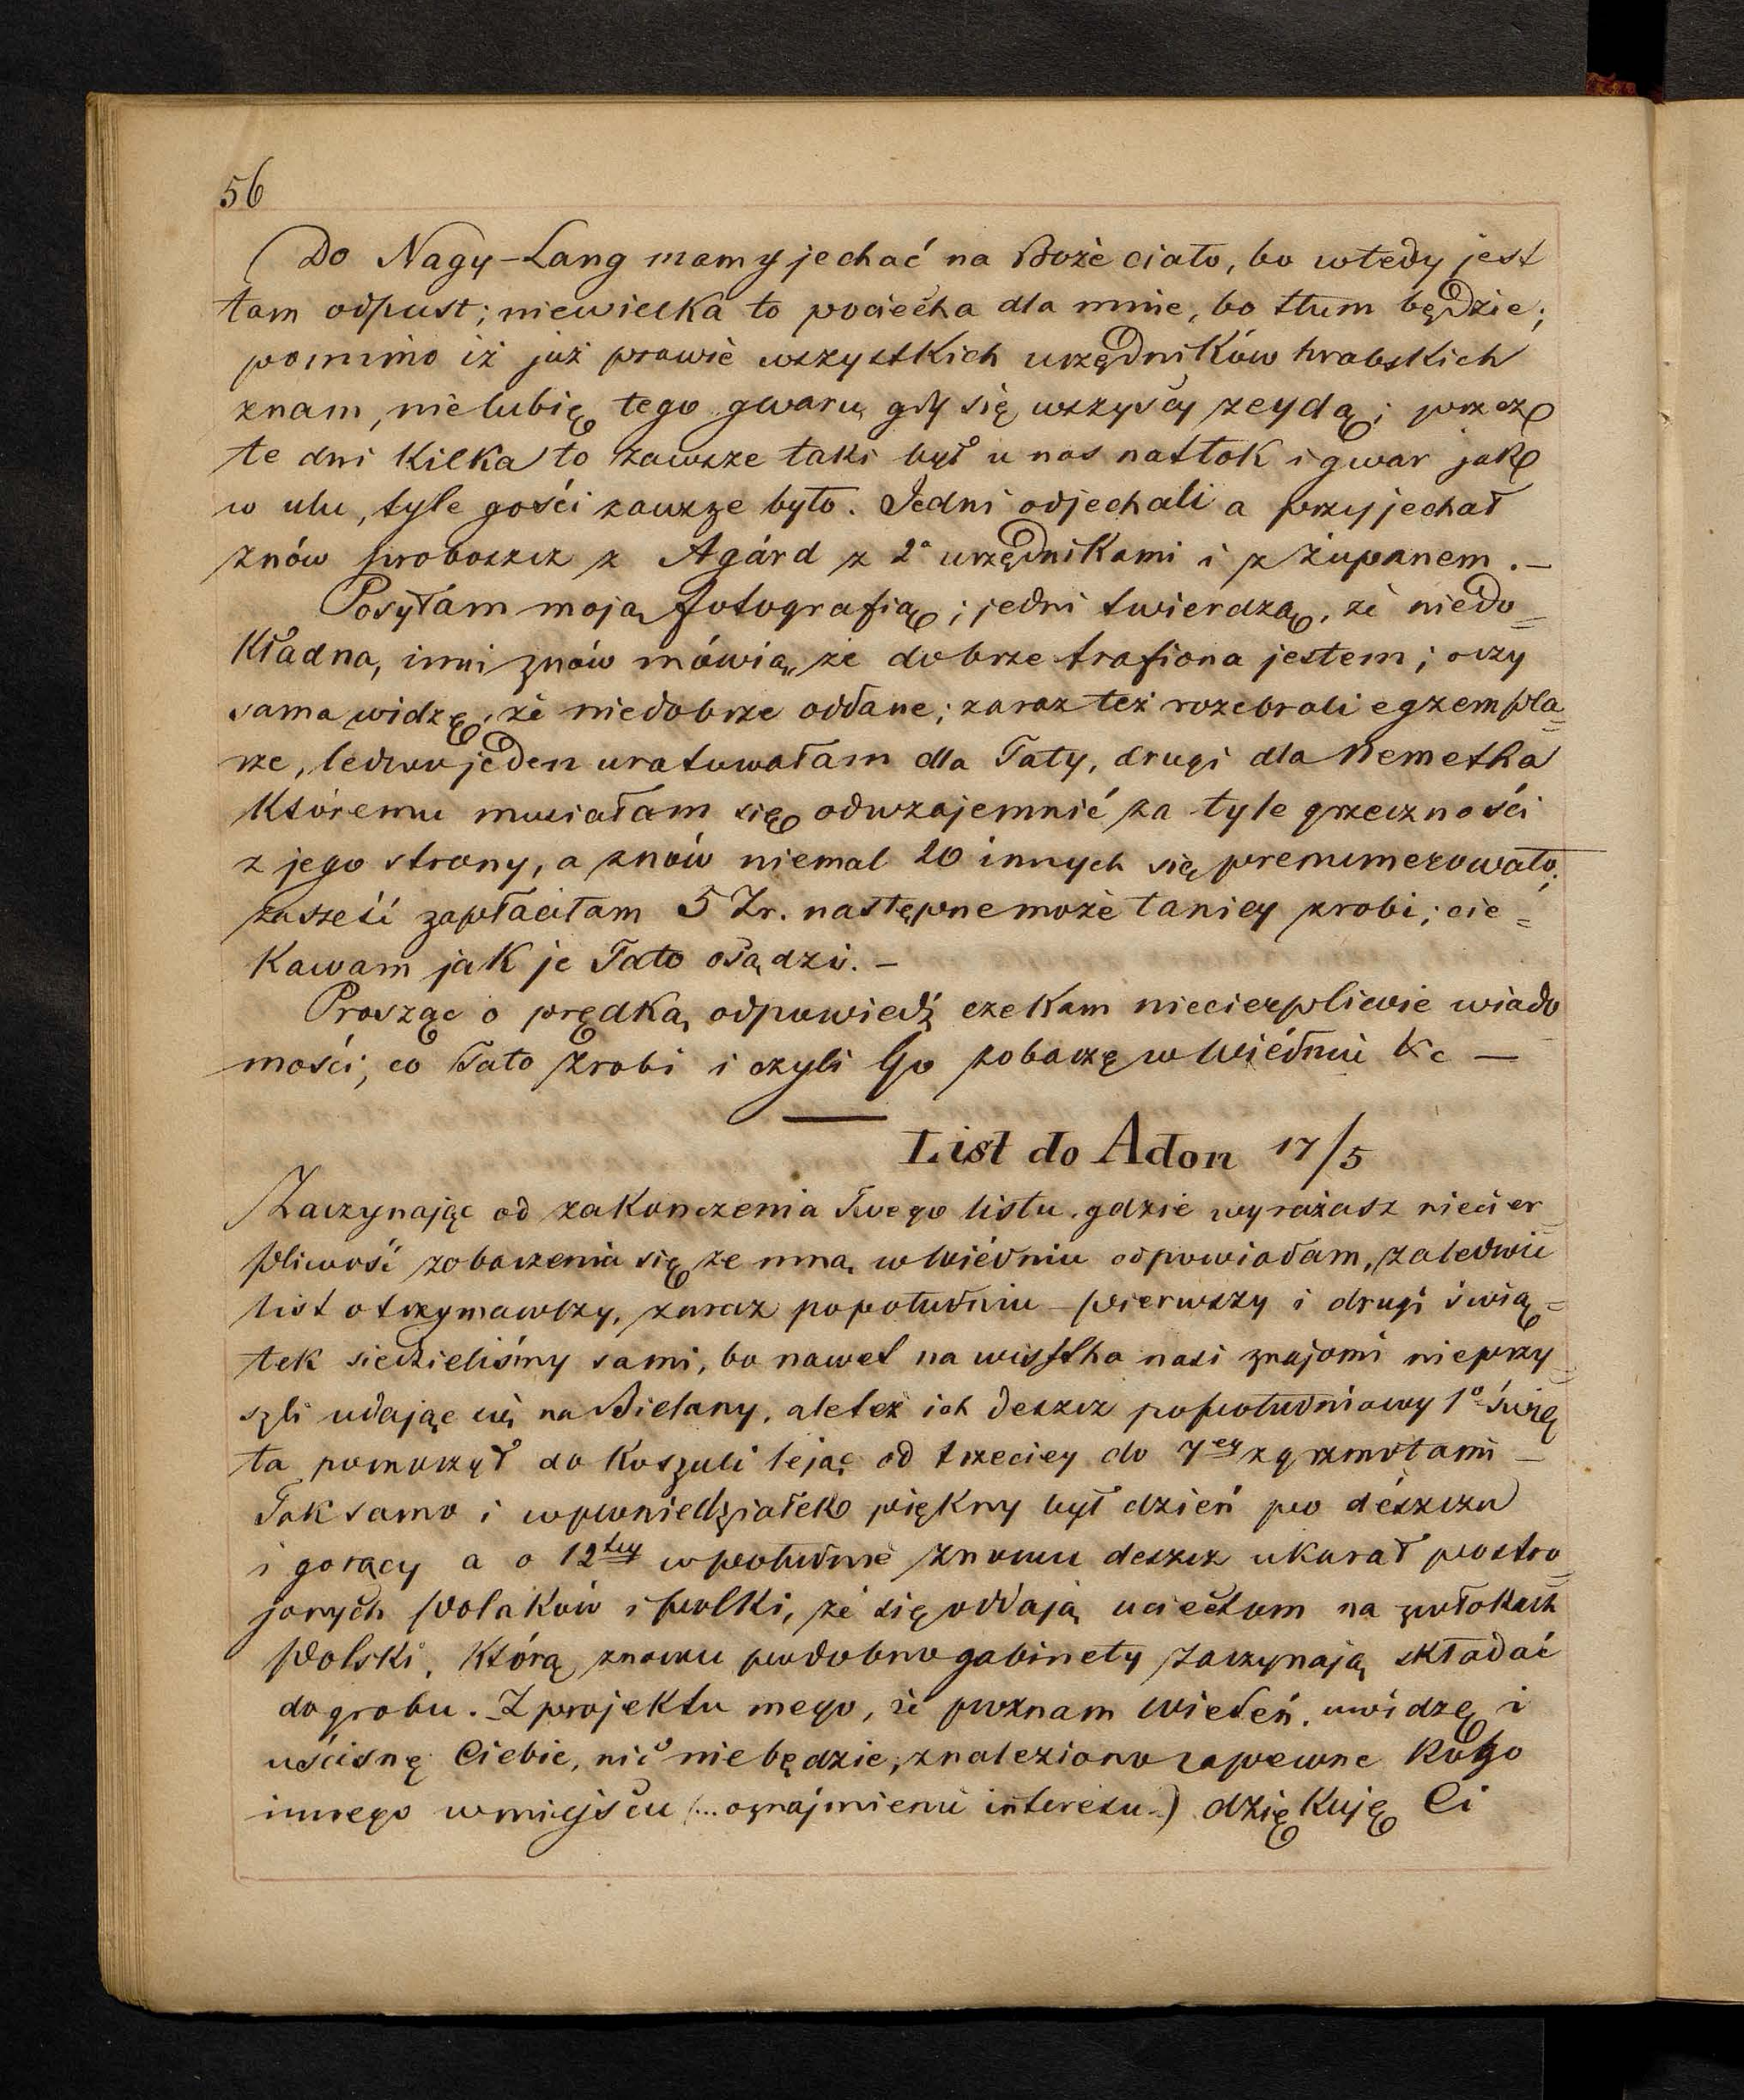 56
Do Nagy-Lang mamy jechać na Boże ciało, bo wtedy jest
tam odpust; niewielka to pociecha dla mnie, bo tłum będzie;
pomimo iż już prawie wszystkich urzędników hrabskich
znam, nie lubię tego gwaru gdy się wszyscy zeydą; przez
te dni kilka to zawsze taki był u nas natłok i gwar jak
w ulu, tyle gości zawsze było. Jedni odjechali a przyjechał
znów proboszcz z Agárd z 2ª urzędnikami i z żupanem. –
Posyłam moją fotografią; jedni twierdzą, że niedo=
kładna, inni znów mówią, że dobrze trafiona jestem; oczy
sama widzę, że niedobrze oddane; zaraz też rozebrali egzempla=
rze, ledwo jeden uratowałam dla Taty, drugi dla Nemetha
któremu musiałam się odwzajemnić za tyle grzeczności
z jego strony, a znów niemal 20 innych się prenumerowało;
za sześć zapłaciłam 5 Zr. następne może taniey zrobi; cie=
kawam jak je Tato osądzi. –
Prosząc o prędką odpowiedź czekam niecierpliwie wiado
mości, co Tato zrobi i czyli Go zobaczę w Wiédniu &c —
List do Adon 17/5
Zaczynając od zakonczenia Twego listu, gdzie wyrażasz niecier=
pliwość zobaczenia się ze mną w Wiédniu odpowiadam, zaledwie
list otrzymawszy, zaraz popołudniu – pierwszy i drugi świą=
tek siedzieliśmy sami, bo nawet na wistka nasi znajomi nieprzy=
szli udając się na Bielany, ale też ich deszcz popołudniowy 1º świę
ta pomoczył do koszuli lejąc od trzeciey do 7ey z grzmotami –
Tak samo i w poniedziałek piękny był dzień po deszczu
i gorący a o 12tey w południe znowu deszcz ukarał postro=
jonych Polaków i Polki, że się oddają uciechom na zwłokach
Polski, którą znowu podobno gabinety zaczynają składać
do grobu. Z projektu mego, że poznam Wiedeń, uwidzę i
uścisnę Ciebie, nic nie będzie, znaleziono zapewne kogo
innego w miejscu (... oznajmienie interesu..) dziękuję Ci